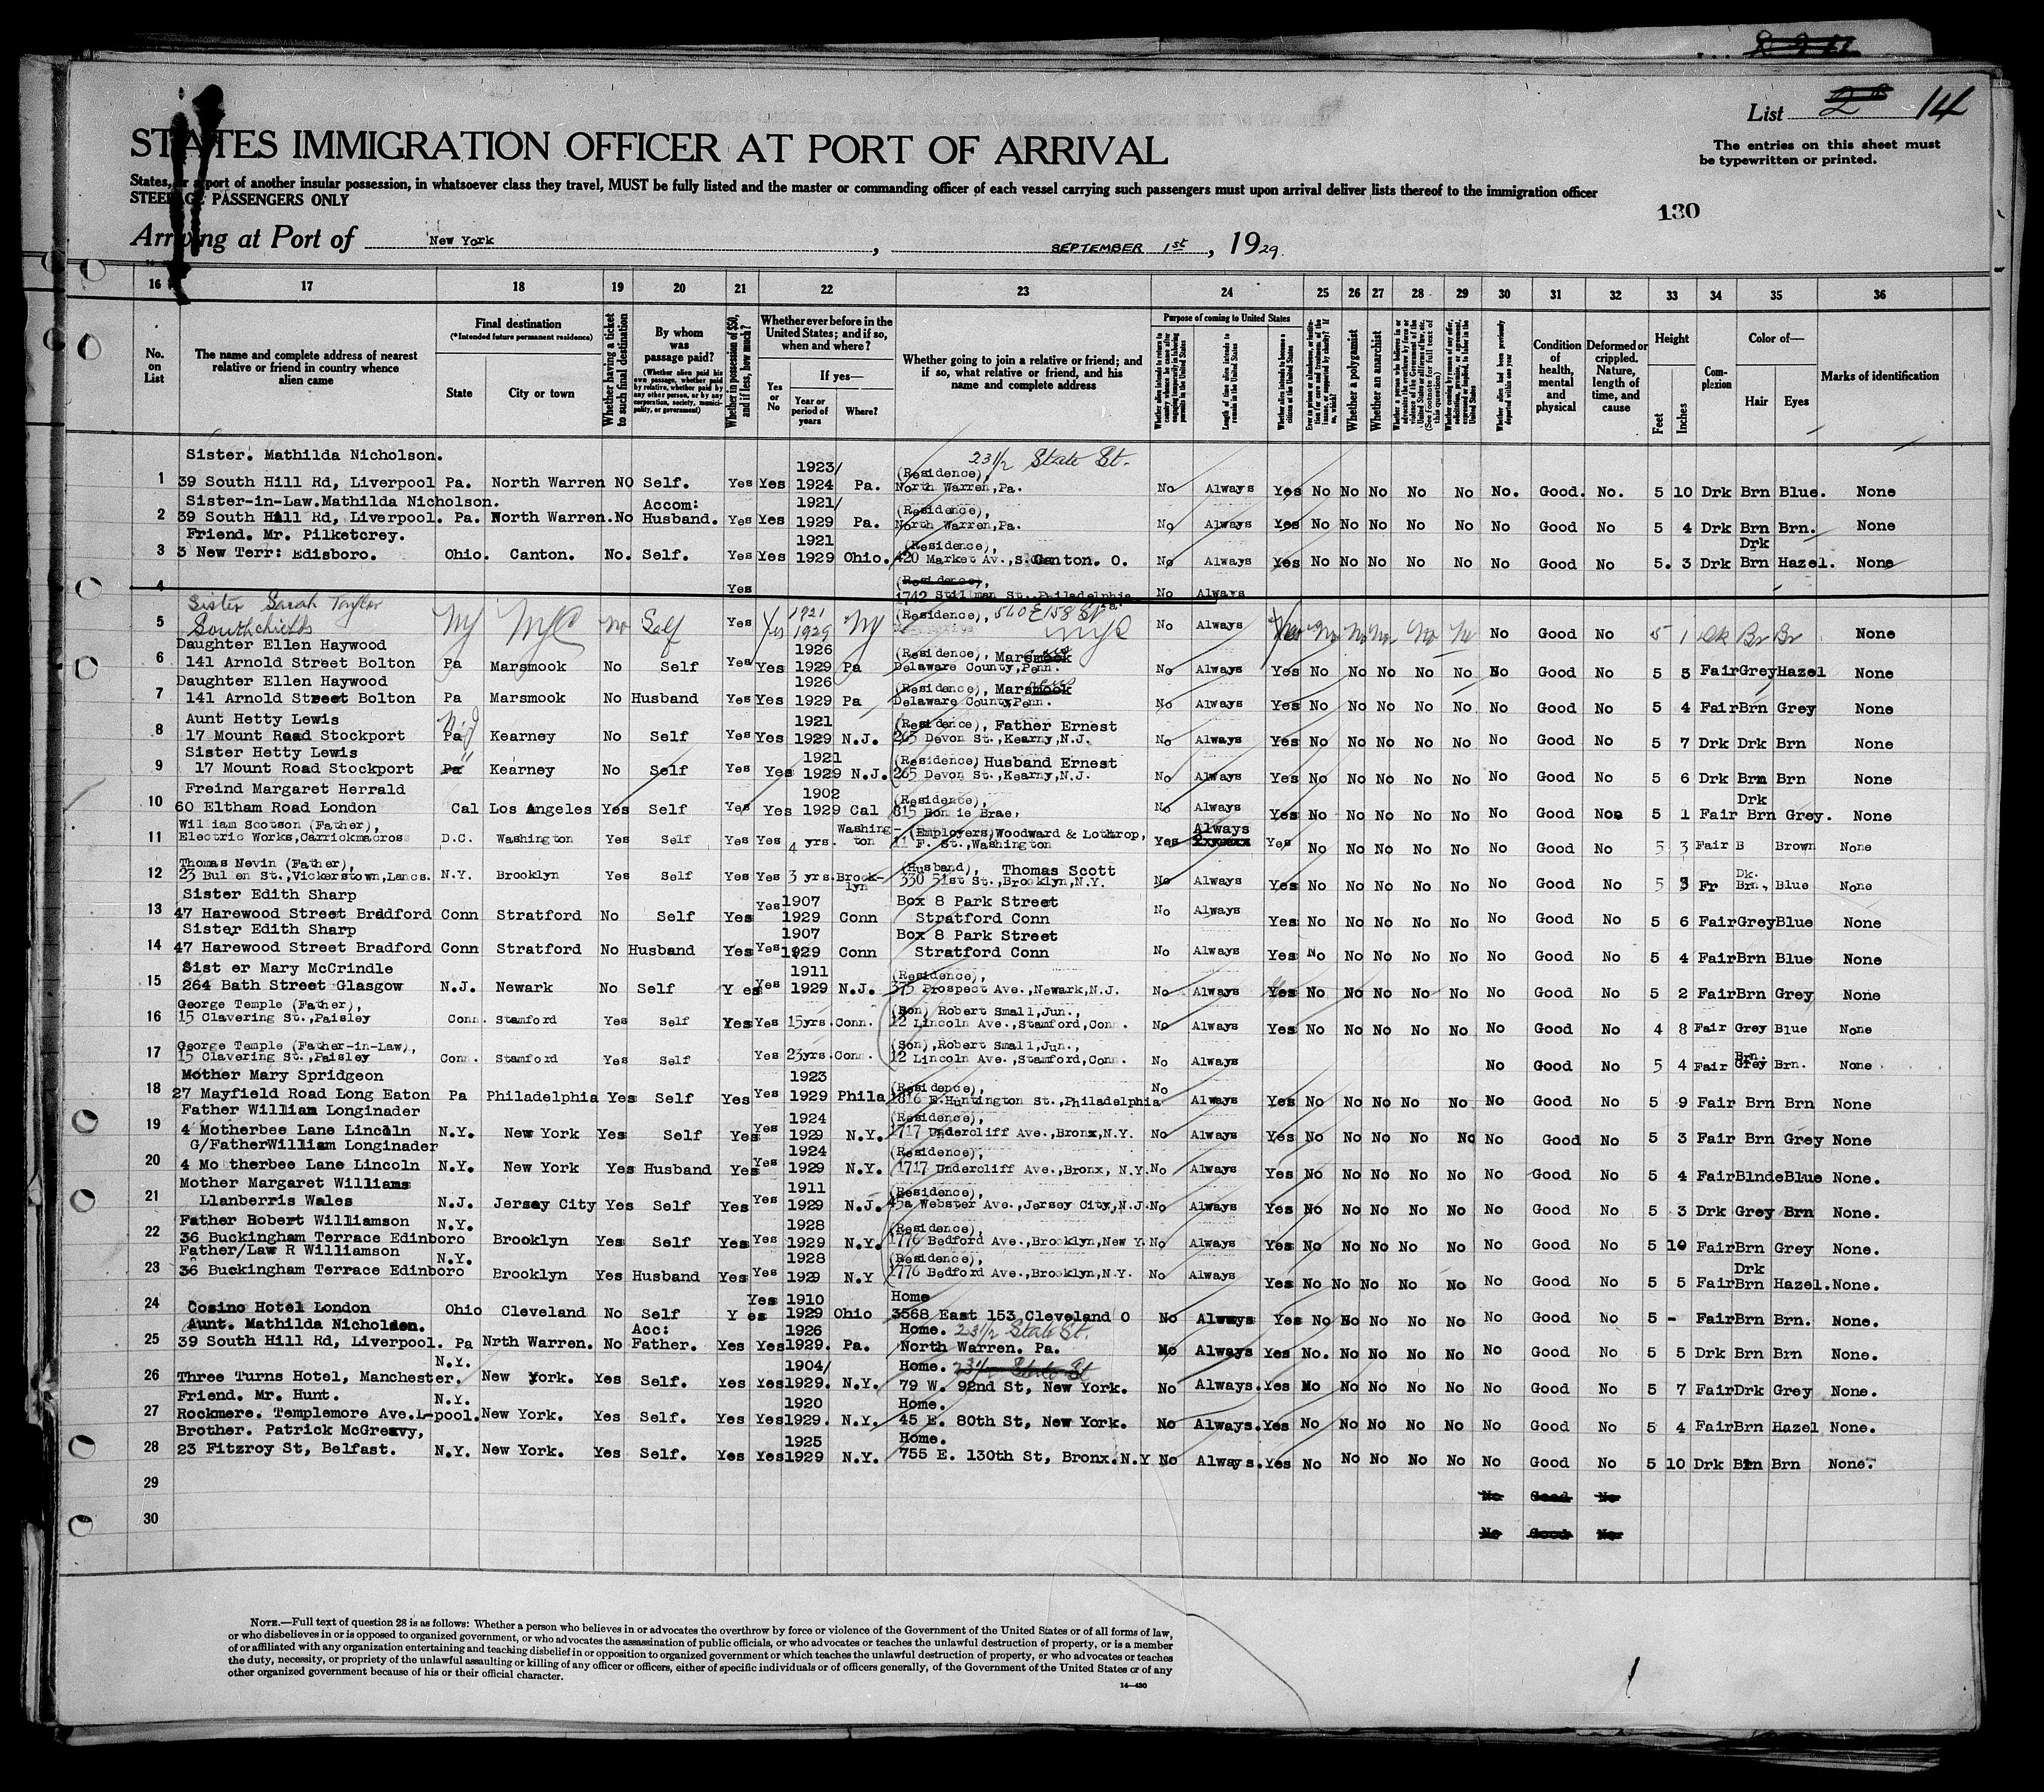 List 14
STATES IMMIGRATION OFFICER AT PORT OF ARRIVAL
The entries on this sheet must
be typewritten or printed.
States, or a port of another insular possession, in whatsoever class they travel, MUST be fully listed and the master or commanding officer of each vessel carrying such passengers must upon arrival deliver lists thereof to the immigration officer
STEERAGE PASSENGERS ONLY
130
Arriving at Port of New York, SEPTEMBER 1st, 1929
16 17 18 19 20 21 22 23 24 25 26 27 28 29 30 31 32 33 34 35 36
No. on List
The name and complete address of nearest relative or friend in country whence alien came
Final destination (*Intended future permanent residence)
State
City or town
Whether having a ticket to such final destination
By whom was passage paid? (Whether alien paid his own passage, whether paid by relative, whether paid by any other person, or by any corporation, society, municipality, or government)
Whether in possession of $50, and if less, how much?
Whether ever before in the United States; and if so, when and where?
Yes or No
If yes—
Year or period of years
Where?
Whether going to join a relative or friend; and if so, what relative or friend, and his name and complete address
Purpose of coming to United States
Whether alien intends to return to country whence he came after engaging temporarily in laboring pursuits in the United States
Length of time alien intends to remain in the United States
Whether alien intends to become a citizen of the United States
Whether a polygamist
Whether an anarchist
Condition of health, mental and physical
Deformed or crippled. Nature, length of time, and cause
Height
Feet
Inches
Complexion
Color of—
Hair
Eyes
Marks of identification
Sister. Mathilda Nicholson. 1923/ (Residence), 23 1/2 State St.
1 39 South Hill Rd, Liverpool Pa. North Warren NO Self. Yes Yes 1924 Pa. North Warren,Pa. No Always Yes No No No No No No. Good. No. 5 10 Drk Brn Blue. None
Sister-in-Law.Mathilda Nicholson. Accom: 1921/ (Residence),
2 39 South Hill Rd, Liverpool. Pa. North Warren.No Husband. Yes Yes 1929 Pa. North Warren,Pa. No Always Yes No No No No No No Good No 5 4 Drk Brn Brn. None
Friend. Mr. Pilketcrey. 1921 (Residence), Drk
3 3 New Terr: Edisboro. Ohio. Canton. No. Self. Yes Yes 1929 Ohio. 420 Market Av.,S. Canton. O. No Always Yes No No No No No No Good No 5. 3 Drk Brn Hazel. None
4 Yes (Residence), 1742 Stillman St. Philadelphia No Always
Sister Sarah Taylor 1921 (Residence), 540 E 158 St
5 Southchields NY NYC No Self Yes Yes 1929 NY NYC No Always No No No No No No Good No 5 1 Dk Br Br None
Daughter Ellen Haywood 1926 (Residence), Marsmook
6 141 Arnold Street Bolton Pa Marsmook No Self Yes Yes 1929 Pa Delaware County,Penn. No Always Yes No No No No No No Good No 5 3 Fair Grey Hazel None
Daughter Ellen Haywood 1926 (Residence), Marsmook
7 141 Arnold Street Bolton Pa Marsmook No Husband Yes Yes 1929 Pa Delaware County,Penn. No Always Yes No No No No No No Good No 5 4 Fair Brn Grey None
Aunt Hetty Lewis NJ 1921 (Residence), Father Ernest
8 17 Mount Road Stockport Pa Kearney No Self Yes Yes 1929 N.J. 265 Devon St.,Kearny,N.J. No Always Yes No No No No No No Good No 5 7 Drk Drk Brn None
Sister Hetty Lewis 1921 (Residence) Husband Ernest
9 17 Mount Road Stockport Pa Kearney No Self Yes Yes 1929 N.J. 265 Devon St.,Kearny,N.J. No Always Yes No No No No No No Good No 5 6 Drk Brn Brn None
Freind Margaret Herrald 1902 (Residence), Drk
10 60 Eltham Road London Cal Los Angeles Yes Self Yes Yes 1929 Cal 815 Bonnie Brae, No Always Yes No No No No No No Good Non 5 1 Fair Brn Grey. None
William Scotson (Father), Washing- (Employers)Woodward & Lothrop, Always
11 Electric Works,Carrickmacross D.C. Washington Yes Self Yes Yes 4 yrs. ton 11 F. St.,Washington Yes Yes No No No No No No Good No 5 3 Fair B Brown None
Thomas Nevin (Father), (Husband), Thomas Scott Dk.
12 23 Bullen St.,Vickerstown,Lancs. N.Y. Brooklyn Yes Self Yes Yes 3 yrs.Brook-lyn 330 51st St.,Brooklyn,N.Y. No Always Yes No No No No No No Good No 5 3 Fr Brn., Blue None
Sister Edith Sharp Yes 1907 Box 8 Park Street
13 47 Harewood Street Bradford Conn Stratford No Self Yes 1929 Conn Stratford Conn No Always Yes No No No No No No Good No 5 6 Fair Grey Blue None
Sister Edith Sharp 1907 Box 8 Park Street
14 47 Harewood Street Bradford Conn Stratford No Husband Yes Yes 1929 Conn Stratford Conn No Always Yes No No No No No No Good No 5 4 Fair Brn Blue None
Sist er Mary McCrindle 1911 (Residence),
15 264 Bath Street Glasgow N.J. Newark No Self Y es Yes 1929 N.J. 375 Prospect Ave.,Newark,N.J. No Always Yes No No No No No No Good No 5 2 Fair Brn Grey None
George Temple (Father), (Son) Robert Small,Jun.,
16 15 Clavering St.,Paisley Conn. Stamford Yes Self Yes Yes 15yrs.Conn. 12 Lincoln Ave.,Stamford,Conn. No Always Yes No No No No No No Good No 4 8 Fair Grey Blue None
George Temple (Father-in-Law), (Son),Robert Small,Jun., Brn.
17 15 Clavering St.,Paisley Conn. Stamford Yes Self Yes 23yrs.Conn. 12 Lincoln Ave.,Stamford,Conn. No Always No Good No 5 4 Fair Grey Brn. None
Mother Mary Spridgeon 1923 (Residence),
18 27 Mayfield Road Long Eaton Pa Philadelphia Yes Self Yes Yes 1929 Phila 1816 E.Huntington St.,Philadelphia No Always Yes No No No No No No Good No 5 9 Fair Brn Brn None
Father William Longinader 1924 (Residence),
19 4 Motherbee Lane Lincoln N.Y. New York Yes Self Yes Yes 1929 N.Y. 1717 Undercliff Ave.,Bronx,N.Y. No Always Yes No No No No No No Good No 5 3 Fair Brn Grey None
G/FatherWilliam Longinader 1924 (Residence),
20 4 Mo therbee Lane Lincoln N.Y. New York Yes Husband Yes Yes 1929 N.Y. 1717 Undercliff Ave.,Bronx, N.Y. No Always Yes No No No No No No Good No 5 4 Fair Blnde Blue None.
Mother Margaret Williams 1911 (Residence),
21 Llanberris Wales N.J. Jersey City Yes Self Yes Yes 1929 N.J. 45a Webster Ave.,Jersey City,N.J. No Always Yes No No No No No No Good No 5 3 Drk Grey Brn None.
Father Robert Williamson N.Y. 1928 (Residence),
22 36 Buckingham Terrace Edinboro Brooklyn Yes Self Yes Yes 1929 N.Y. 1776 Bedford Ave.,Brooklyn,New Y. No Always Yes No No No No No No Good No 5 10 Fair Brn Grey None.
Father/Law R Williamson N.Y. 1928 (Residence), Drk
23 36 Buckingham Terrace Edinboro Brooklyn Yes Husband Yes Yes 1929 N.Y 1776 Bedford Ave.,Brooklyn,N.Y. No Always Yes No No No No No No Good No 5 5 Fair Brn Hazel. None.
Yes 1910 Home
24 Cosino Hotel London Ohio Cleveland No Self Y es 1929 Ohio 3568 East 153 Cleveland O No Always Yes No No No No No No Good No 5 - Fair Brn Brn. None.
Aunt. Mathilda Nicholson. Acc: 1926 Home. 23 1/2 State St.
25 39 South Hill Rd, Liverpool. Pa Nrth Warren. No Father. Yes Yes 1929. Pa. North Warren. Pa. No Always Yes No. No No No No No Good No 5 5 Drk Brn Brn None.
N.Y. 1904/ Home. 23 1/2 State St
26 Three Turns Hotel, Manchester. New York. Yes Self. Yes Yes 1929. N.Y. 79 W. 92nd St, New York. No Always. Yes No No No No No No Good No 5 7 Fair Drk Grey None.
Friend. Mr. Hunt. N.Y. 1920 Home.
27 Rockmere. Templemore Ave.L-pool. New York. Yes Self. Yes Yes 1929. N.Y. 45 E. 80th St, New York. No Always. Yes No No No No No No Good No 5 4 Fair Brn Hazel None.
Brother. Patrick McGreavy, 1925 Home.
28 23 Fitzroy St, Belfast. N.Y. New York. Yes Self. Yes Yes 1929 N.Y. 755 E. 130th St, Bronx.N.Y No Always. Yes No No No No No No Good No 5 10 Drk Brn Brn None.
29 No Good No
30 No Good No
NOTE.—Full text of question 28 is as follows: Whether a person who believes in or advocates the overthrow by force or violence of the Government of the United States or of all forms of law,
or who disbelieves in or is opposed to organized government, or who advocates the assassination of public officials, or who advocates or teaches the unlawful destruction of property, or is a member
of or affiliated with any organization entertaining and teaching disbelief in or opposition to organized government or which teaches the unlawful destruction of property, or who advocates or teaches
the duty, necessity, or propriety of the unlawful assaulting or killing of any officer or officers, either of specific individuals or of officers generally, of the Government of the United States or of any
other organized government because of his or their official character.
14—430